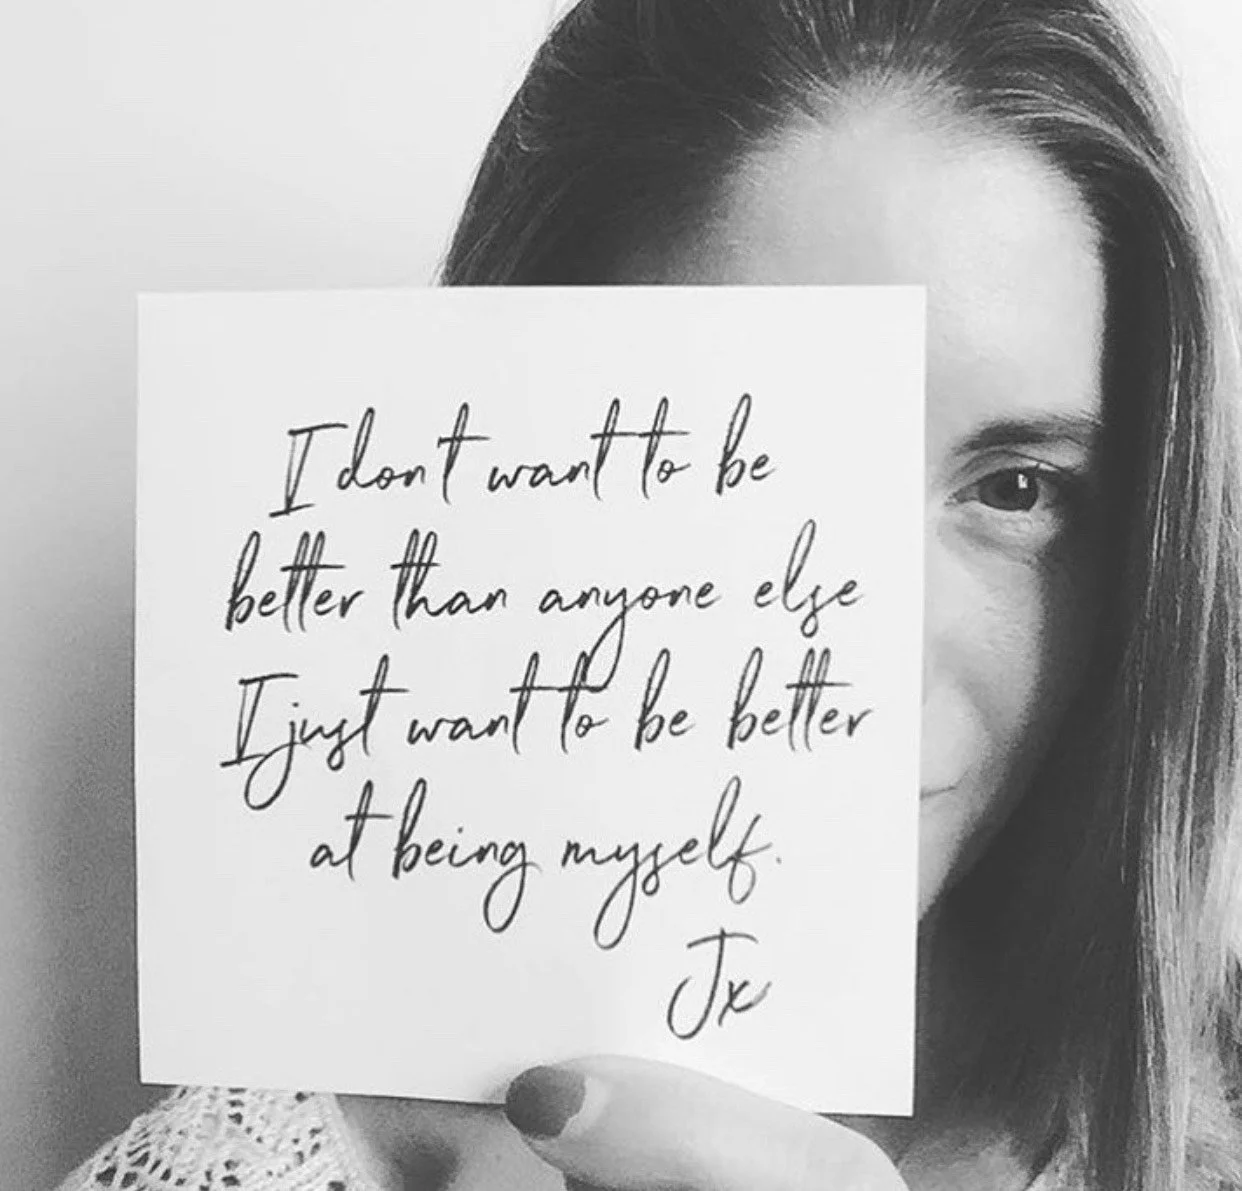 I don't want to be
better than anyone else
I just want to be better
at being myself.
Jx